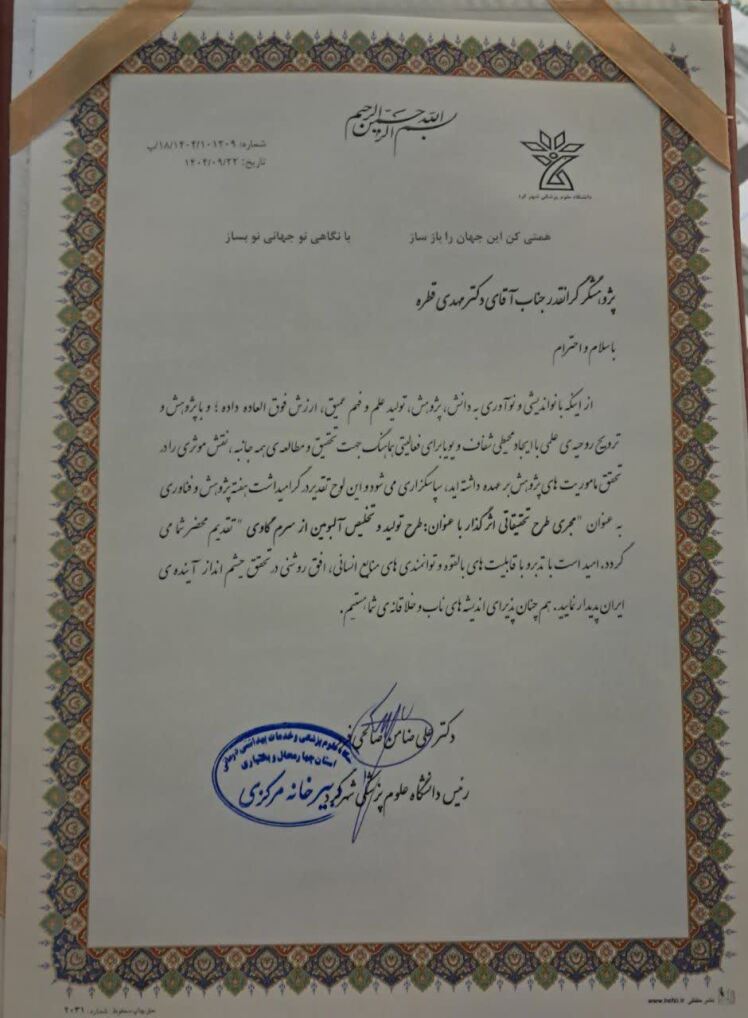 بسم الله الرحمن الرحیم
شماره: ۱۸/۱۴۰۴/۱۰۱۲۰۹/پ
تاریخ: ۱۴۰۴/۰۹/۲۲
دانشگاه علوم پزشکی شهر کرد
همتی کن این جهان را باز ساز با نگاهی نو جهانی نو بساز
پژوهشگر گرانقدر جناب آقای دکتر مهدی قطره
باسلام و احترام
از اینکه با نواندیشی و نوآوری به دانش، پژوهش، تولید علم و فهم عمیق، ارزش فوق العاده داده ؛ و با پژوهش و
ترویج روحیه ی علمی با ایجاد محیطی شفاف و پویا برای فعالیتی هماهنگ جهت تحقیق و مطالعه ی همه جانبه، نقش موثری را در
تحقق ماموریت های پژوهش بر عهده داشته اید، سپاسگزاری می شود و این لوح تقدیر در گرامیداشت هفته پژوهش و فناوری
به عنوان "مجری طرح تحقیقاتی اثرگذار با عنوان: طرح تولید و تخلیص آلبومین از سرم گاوی" تقدیم محضر شما می
گردد. امید است با تدبر و با قابلیت های بالقوه و توانمندی های منابع انسانی، افق روشنی در تحقق چشم انداز آینده ی
ایران پدیدار نمایید. هم چنان پذیرای اندیشه های ناب و خلاقانه ی شما هستیم.
دکتر علی ضامن صالحی
رئیس دانشگاه علوم پزشکی شهرکرد
دانشگاه علوم پزشکی و خدمات بهداشتی درمانی
استان چهارمحال و بختیاری
دبیرخانه مرکزی
www.hefzi.ir
شماره: ۲۰۳۱